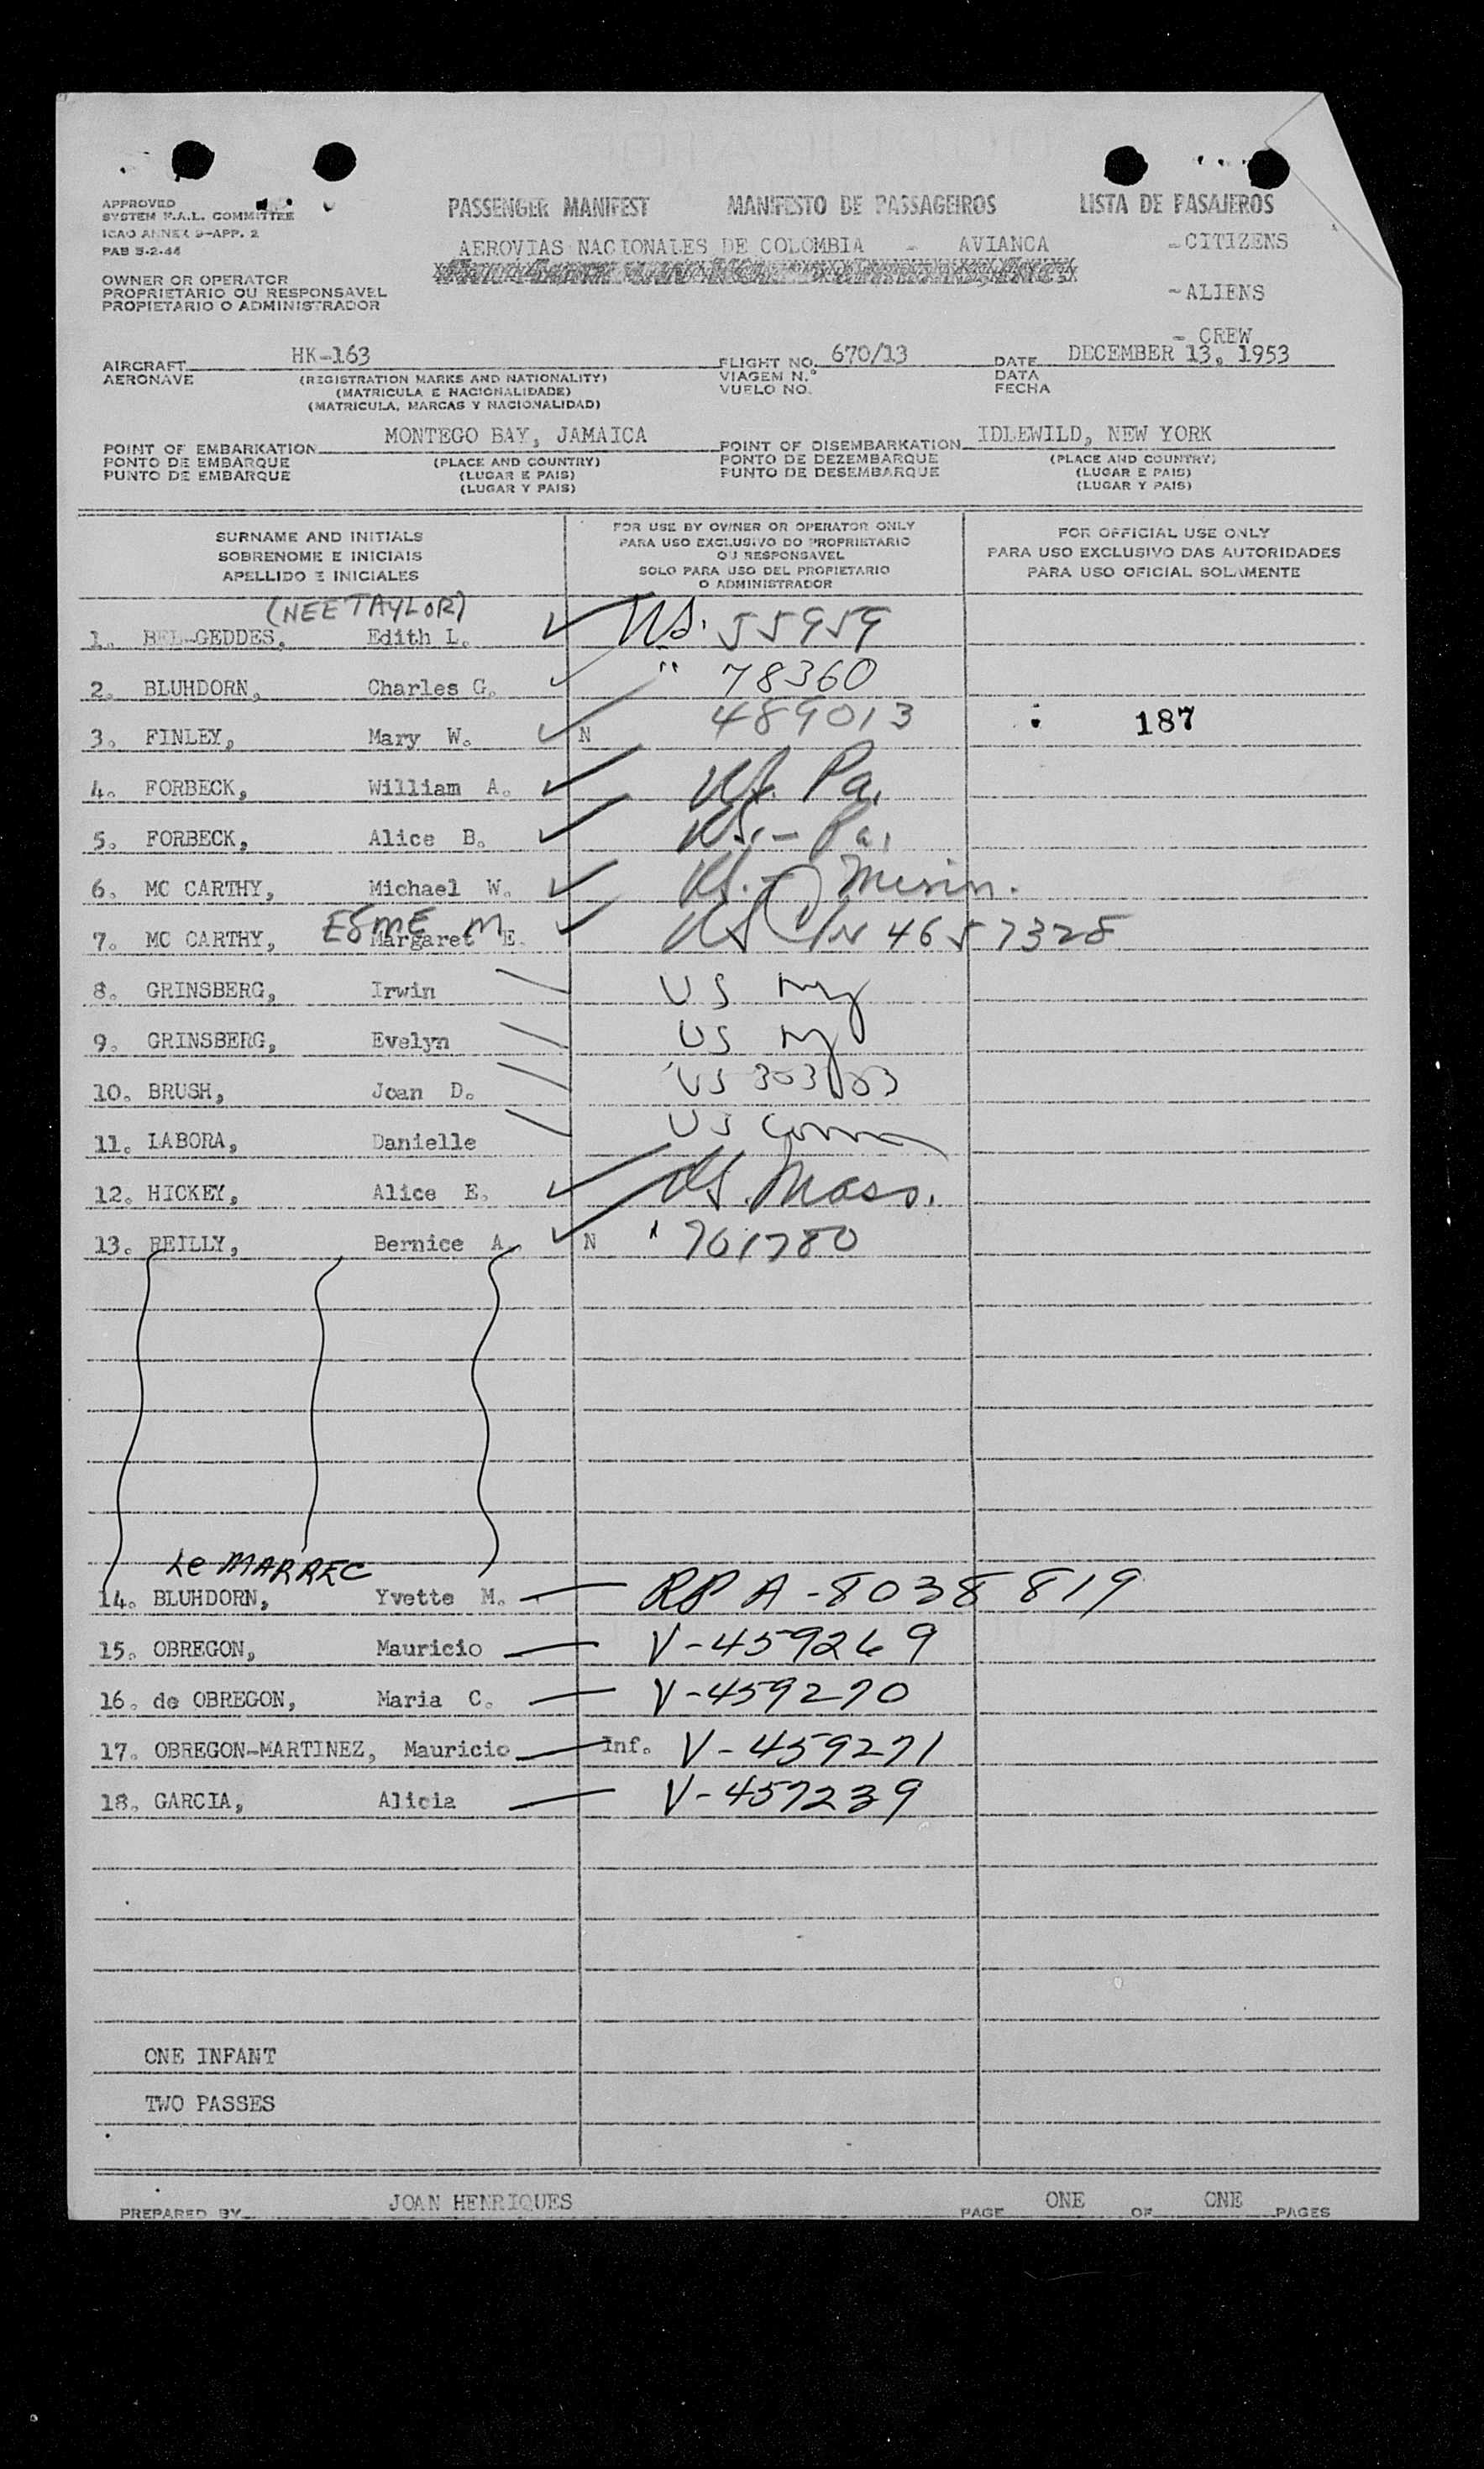 APPROVED
SYSTEM F.A.L. COMMITTEE
ICAO ANNEX 9-APP. 2
PAB 5-2-44
PASSENGER MANIFEST MANIFESTO DE PASSAGEIROS LISTA DE PASAJEROS
AEROVIAS NACIONALES DE COLOMBIA - AVIANCA
-CITIZENS
-ALIENS
- CREW
OWNER OR OPERATOR
PROPRIETARIO OU RESPONSAVEL
PROPIETARIO O ADMINISTRADOR
AIRCRAFT HK-163 FLIGHT NO. 670/13 DATE DECEMBER 13, 1953
AERONAVE (REGISTRATION MARKS AND NATIONALITY) VIAGEM N.º DATA
(MATRICULA E NACIONALIDADE) VUELO NO. FECHA
(MATRICULA, MARCAS Y NACIONALIDAD)
POINT OF EMBARKATION MONTEGO BAY, JAMAICA POINT OF DISEMBARKATION IDLEWILD, NEW YORK
PONTO DE EMBARQUE (PLACE AND COUNTRY) PONTO DE DEZEMBARQUE (PLACE AND COUNTRY)
PUNTO DE EMBARQUE (LUGAR E PAIS) PUNTO DE DESEMBARQUE (LUGAR E PAIS)
(LUGAR Y PAIS) (LUGAR Y PAIS)
SURNAME AND INITIALS
SOBRENOME E INICIAIS
APELLIDO E INICIALES
FOR USE BY OWNER OR OPERATOR ONLY
PARA USO EXCLUSIVO DO PROPRIETARIO
OU RESPONSAVEL
SOLO PARA USO DEL PROPIETARIO
O ADMINISTRADOR
FOR OFFICIAL USE ONLY
PARA USO EXCLUSIVO DAS AUTORIDADES
PARA USO OFICIAL SOLAMENTE
(NEE TAYLOR)
1. BEL-GEDDES, Edith L. US. 55959
2. BLUHDORN, Charles G. " 78360
3. FINLEY, Mary W. N 489013 187
4. FORBECK, William A. US. Pa.
5. FORBECK, Alice B. US. - Pa.
6. MC CARTHY, Michael W. US. - Minn.
ESME M
7. MC CARTHY, Margaret E. US IN 4657328
8. GRINSBERG, Irwin US NY
9. GRINSBERG, Evelyn US NY
10. BRUSH, Joan D. US
11. LABORA, Danielle US Conn
12. HICKEY, Alice E. US. Mass.
13. REILLY, Bernice A. N " 701780
Le MARREC
14. BLUHDORN, Yvette M. RP A-8038819
15. OBREGON, Mauricio V-459269
16. de OBREGON, Maria C. V-459270
17. OBREGON-MARTINEZ, Mauricio Inf. V-459271
18. GARCIA, Alicia V-457239
ONE INFANT
TWO PASSES
PREPARED BY JOAN HENRIQUES PAGE ONE OF ONE PAGES